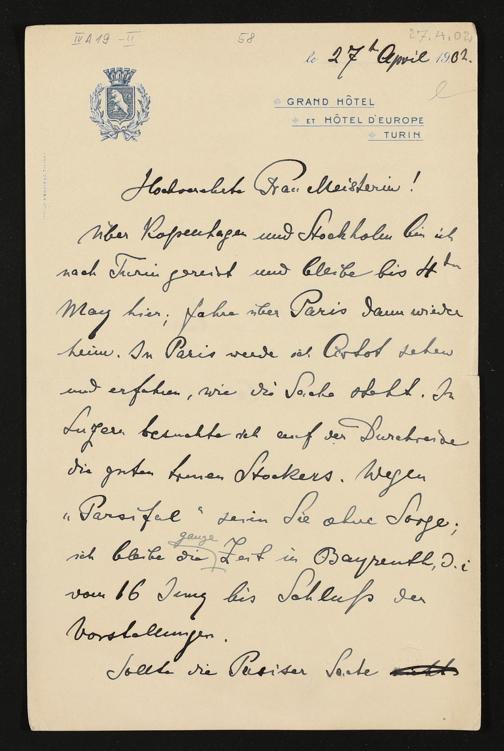 IV A 19 - II
58
27.4.02
le 27t April 1902.
GRAND HÔTEL
ET HÔTEL D'EUROPE
TURIN
Hochverehrte Frau Meisterin!
Über Kopenhagen und Stockholm bin ich
nach Turin gereist und bleibe bis 4ten
May hier; fahre über Paris dann wieder
heim. In Paris werde ich Artot sehen
und erfahren, wie die Sache steht. In
Luzern besuchte ich auf der Durchreise
die guten treuen Stockers. Wegen
"Parsifal" seien Sie ohne Sorge;
ganze
ich bleibe die Zeit in Bayreuth, d.i
vom 16 Juny bis Schluß der
Vorstellungen.
Sollte die Pariser Sache